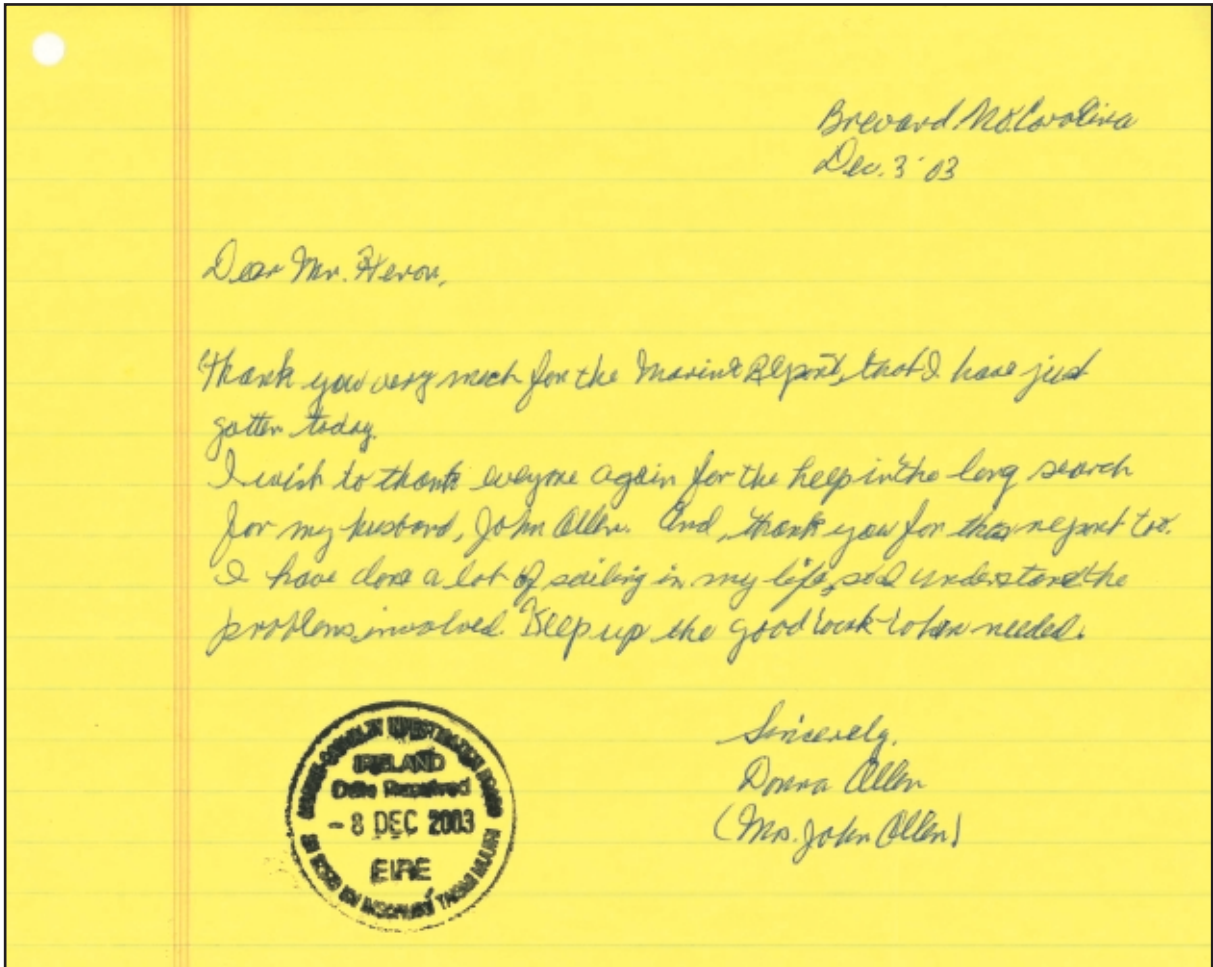 Brevard No. Carolina
Dec. 3 '03
Dear Mr. Heron,
Thank you very much for the Marine Report, that I have just
gotten today.
I wish to thank everyone again for the help in the long search
for my husband, John Allen. And, thank you for this report too.
I have done a lot of sailing in my life, so I understand the
problems involved. Keep up the good work when needed.
Sincerely,
Donna Allen
(Mrs. John Allen)
IRELAND
Date Received
- 8 DEC 2003
EIRE